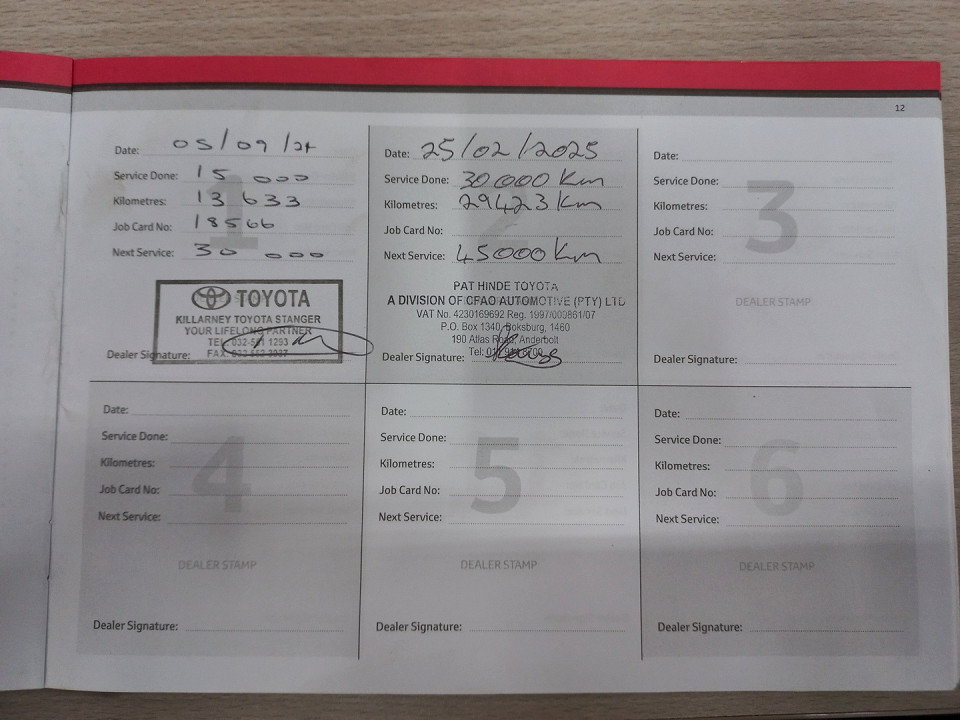 12
Date: 05/09/24
Service Done: 15 000
Kilometres: 13 633
Job Card No: 18566
Next Service: 30 000
TOYOTA
KILLARNEY TOYOTA STANGER
YOUR LIFELONG PARTNER
TEL 032-551 1293
Dealer Signature: FAX
1
Date: 25/02/2025
Service Done: 30 000 Km
Kilometres: 29423 Km
Job Card No:
Next Service: 45000 Km
PAT HINDE TOYOTA
A DIVISION OF CFAO AUTOMOTIVE (PTY) LTD
VAT No. 4230169692 Reg. 1997/009861/07
P.O. Box 1340, Boksburg, 1460
190 Atlas Road, Anderbolt
Tel:
Dealer Signature:
2
Date:
Service Done:
Kilometres:
Job Card No:
Next Service:
3
DEALER STAMP
Dealer Signature:
Date:
Service Done:
Kilometres:
Job Card No:
Next Service:
4
DEALER STAMP
Dealer Signature:
Date:
Service Done:
Kilometres:
Job Card No:
Next Service:
5
DEALER STAMP
Dealer Signature:
Date:
Service Done:
Kilometres:
Job Card No:
Next Service:
6
DEALER STAMP
Dealer Signature: